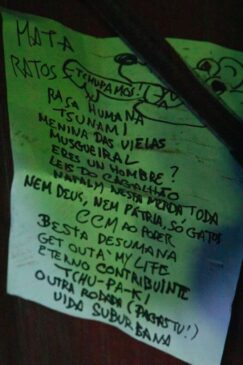 MATA
RATOS
TCHUPAMOS!
RAÇA HUMANA
TSUNAMI
MENINA DAS VIELAS
MUSGUEIRAL
ERES UN HOMBRE?
LEI DO CABALHÃO
NATAL, NESTA MERDA TODA
NEM DEUS, NEM PÁTRIA, SÓ GATOS
CCM AO PODER
BESTA DESUMANA
GET OUTA MY LIFE
ETERNO CONTRIBUINTE
TCHU-PA-KI
OUTRA RODADA (PAGAS TU!)
VIDA SUBURBANA